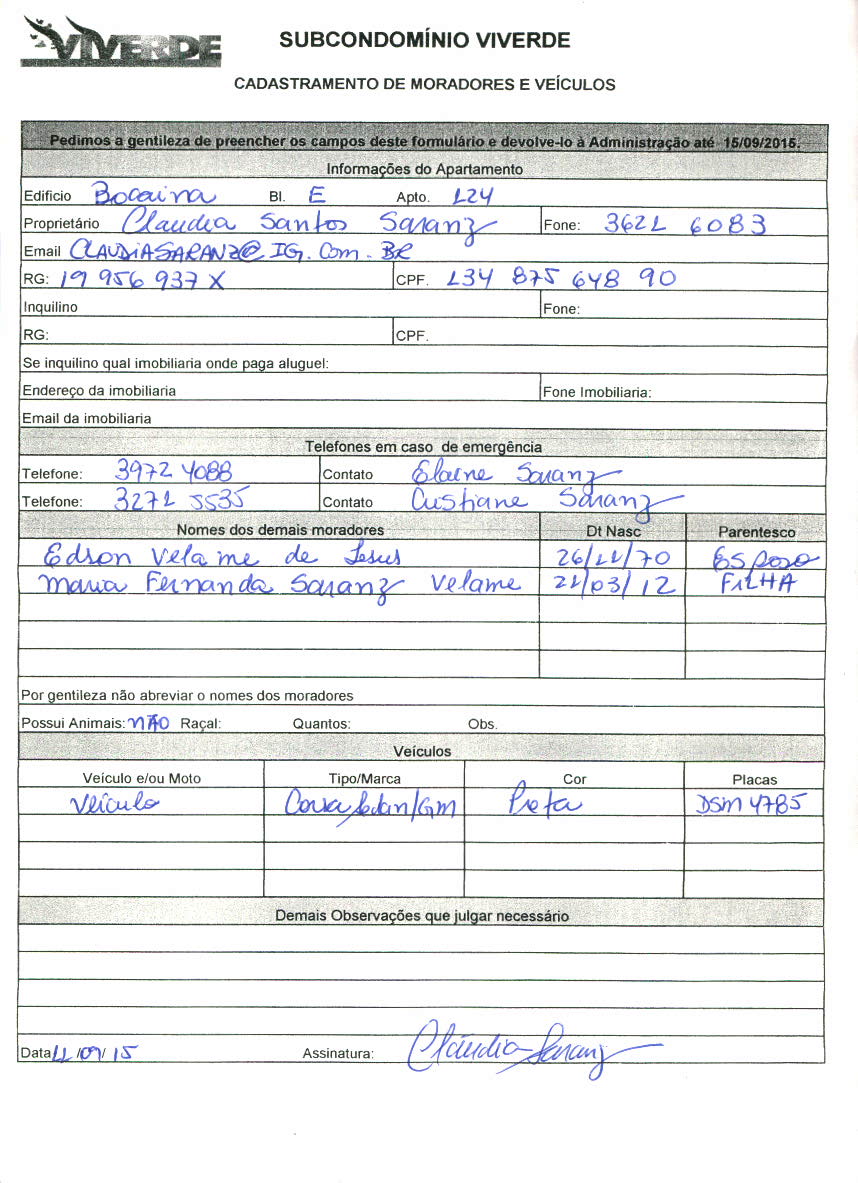 VIVERDE
SUBCONDOMÍNIO VIVERDE
CADASTRAMENTO DE MORADORES E VEÍCULOS
Pedimos a gentileza de preencher os campos deste formulário e devolve-lo à Administração até 15/09/2015.
Informações do Apartamento
Edificio Bocaina Bl. E Apto. 124
Proprietário Claudia Santos Saranz Fone: 3621 6083
Email CLAUDIASARANZ@IG.COM.BR
RG: 19 956 937 X CPF. 134 875 648 90
Inquilino Fone:
RG: CPF.
Se inquilino qual imobiliaria onde paga aluguel:
Endereço da imobiliaria Fone Imobiliaria:
Email da imobiliaria
Telefones em caso de emergência
Telefone: 3972 4088 Contato Elaine Saranz
Telefone: 3271 5535 Contato Cristiane Saranz
Nomes dos demais moradores Dt Nasc Parentesco
Edson Velame de Jesus 26/11/70 Esposo
Maria Fernanda Saranz Velame 21/03/12 FILHA
Por gentileza não abreviar o nomes dos moradores
Possui Animais: NÃO Raçal: Quantos: Obs.
Veículos
Veículo e/ou Moto Tipo/Marca Cor Placas
Veículo Corsa Sedan/GM Preta DSM 4785
Demais Observações que julgar necessário
Data 11/09/15 Assinatura: Cláudia Saranz